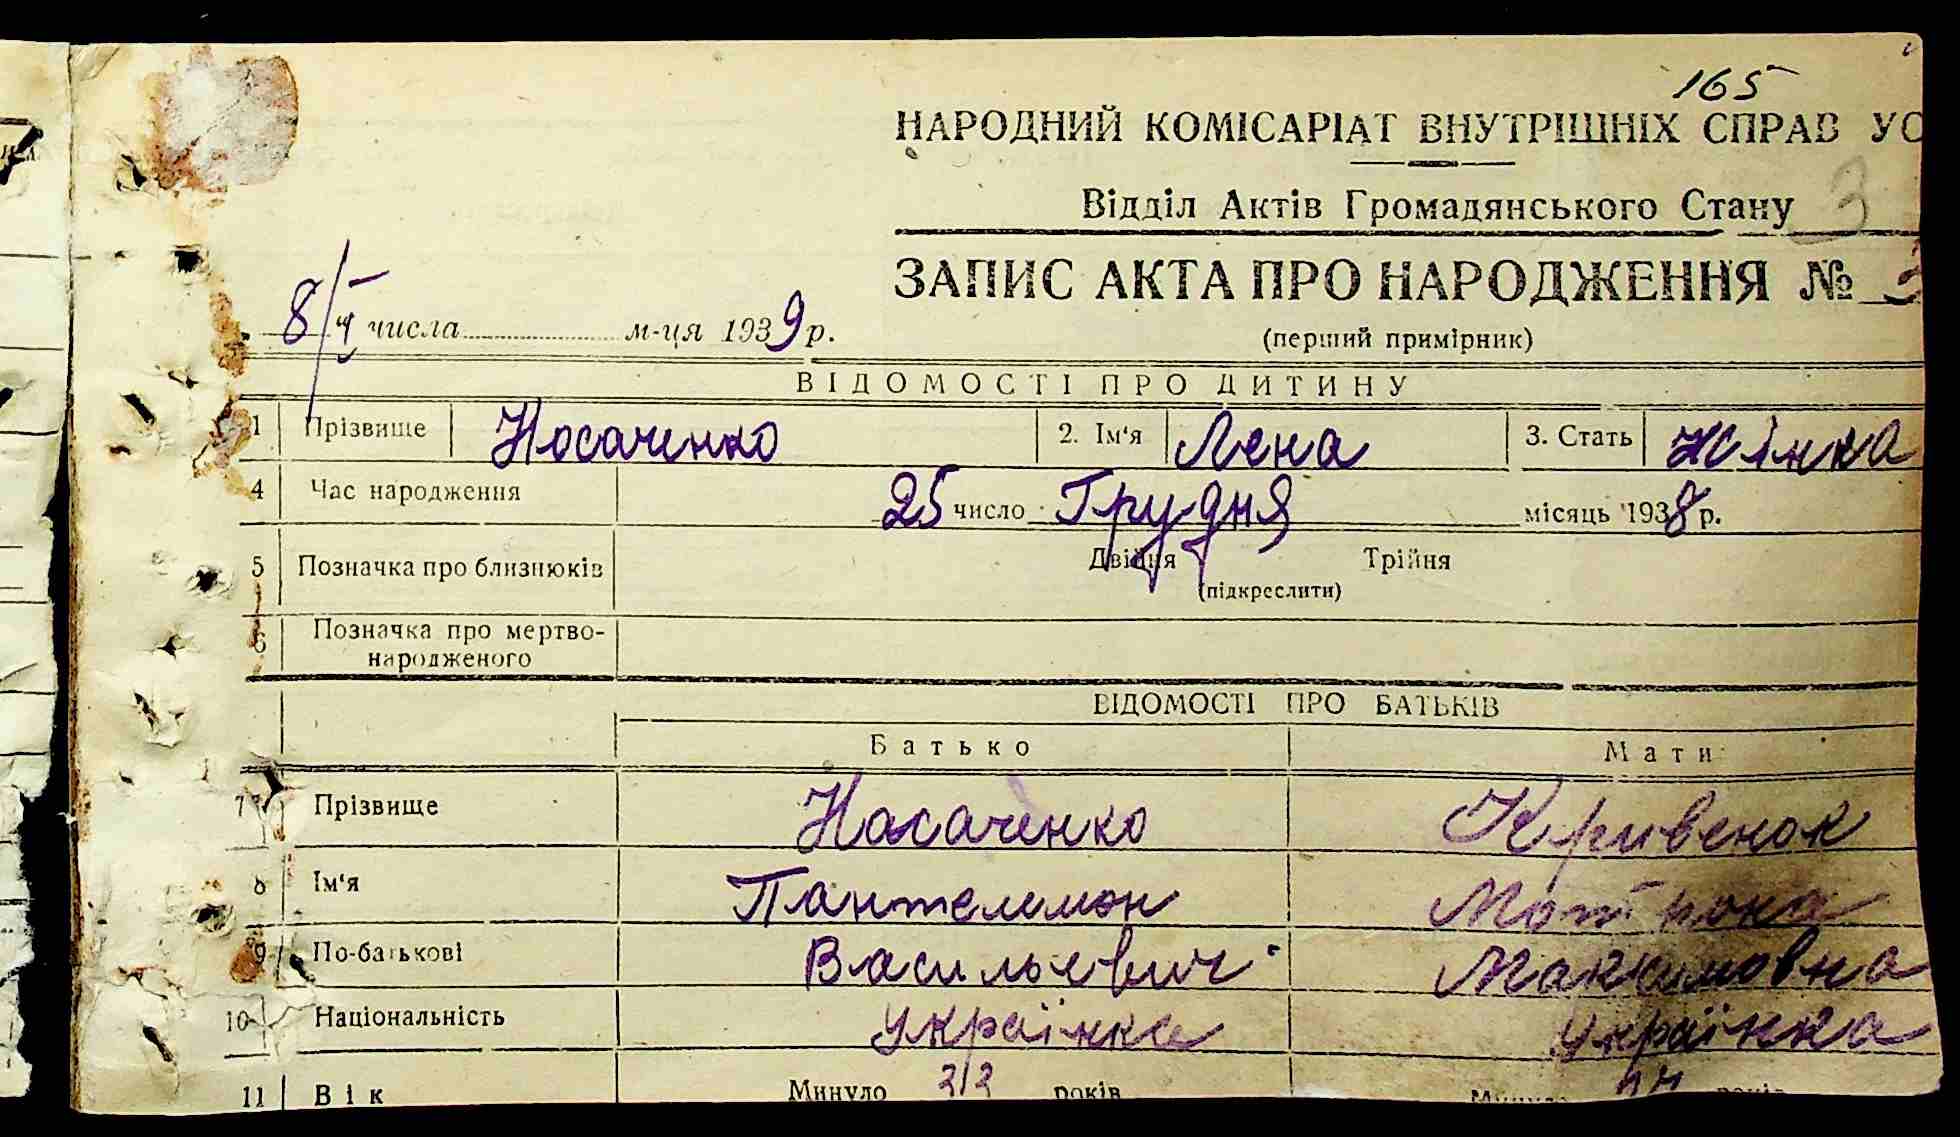 165
НАРОДНИЙ КОМІСАРІАТ ВНУТРІШНІХ СПРАВ УС
Відділ Актів Громадянського Стану 3
ЗАПИС АКТА ПРО НАРОДЖЕННЯ № 3
8/I числа м-ця 1939 р.
(перший примірник)
ВІДОМОСТІ ПРО ДИТИНУ
1 Прізвище Носаченко 2. Ім'я Лена 3. Стать Жінка
4 Час народження 25 число Грудня місяць 1938 р.
5 Позначка про близнюків Двійня Трійня
(підкреслити)
6 Позначка про мертво-
народженого
ВІДОМОСТІ ПРО БАТЬКІВ
Батько Мати
7 Прізвище Носаченко Кривенок
8 Ім'я Пантелемон Мотрона
9 По-батькові Васильевич Максимовна
10 Національність Українка Українка
11 Вік Минуло років Минуло років